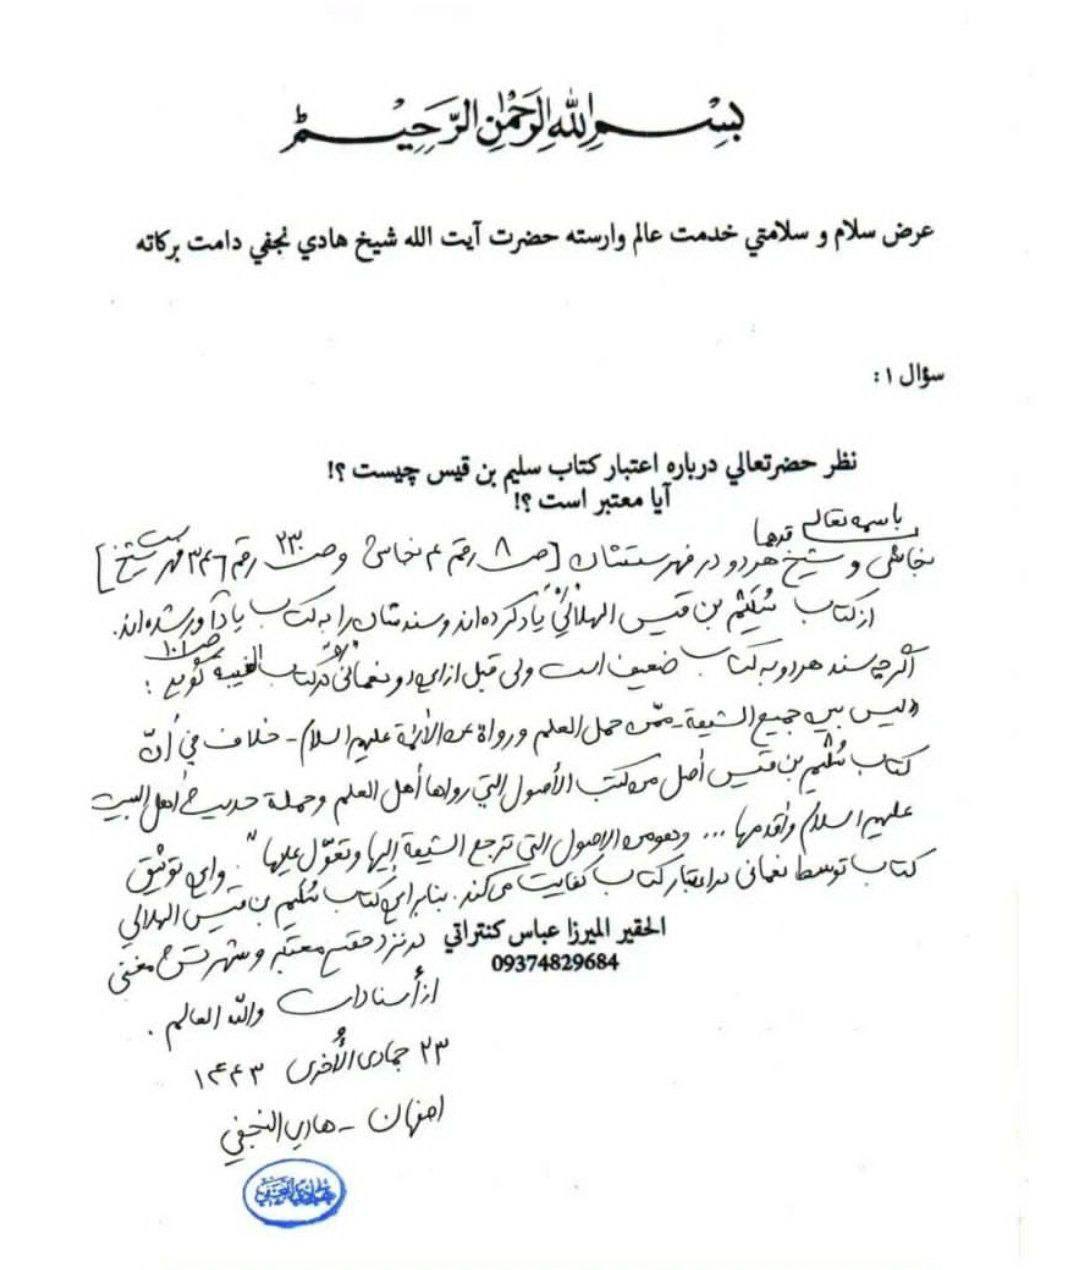 بِسْمِ اللهِ الرَّحْمٰنِ الرَّحِيْمِ
عرض سلام و سلامتي خدمت عالم وارسته حضرت آيت الله شيخ هادي نجفي دامت بركاته
سؤال ١:
نظر حضرتعالي درباره اعتبار كتاب سليم بن قيس چيست ؟!
آيا معتبر است ؟!
باسمه تعالی
نجاشی و شیخ قدهما هر دو در فهرستشان [ص ٨ رقم ۴ نجاشی و ص ٢٣٠ رقم ٣۴٦ فهرست شیخ]
از کتاب سُلَیْم بن قیس الهلالیّ یاد کرده‌اند و سندشان را به کتاب یادآور شده‌اند.
اگرچه سند هر دو به کتاب ضعیف است ولی قبل از این دو نعمانی در کتاب الغیبة ص ١٠١ گوید:
«لیس بین جمیع الشیعة - ممّن حمل العلم و رواة عن الأئمة علیهم السلام - خلاف في أنّ
کتاب سُلیم بن قیس أصل من کتب الأصول التي رواها أهل العلم وحملة حدیث أهل البیت
علیهم السلام وأقدمها ... وهو من الاصول التي ترجع الشیعة إلیها وتعوّل علیها». و این توثیق
کتاب توسط نعمانی در اعتبار کتاب کفایت می‌کند. بنابراین کتاب سُلیم بن قیس الهلالي
در نزد حقیر معتبر و شهرتش مغنی
الحقير الميرزا عباس كنتراتي
09374829684
از أسناد است والله العالم.
٢٣ جمادی الأُخری ١۴۴٣
اصفهان - هادی النجفي